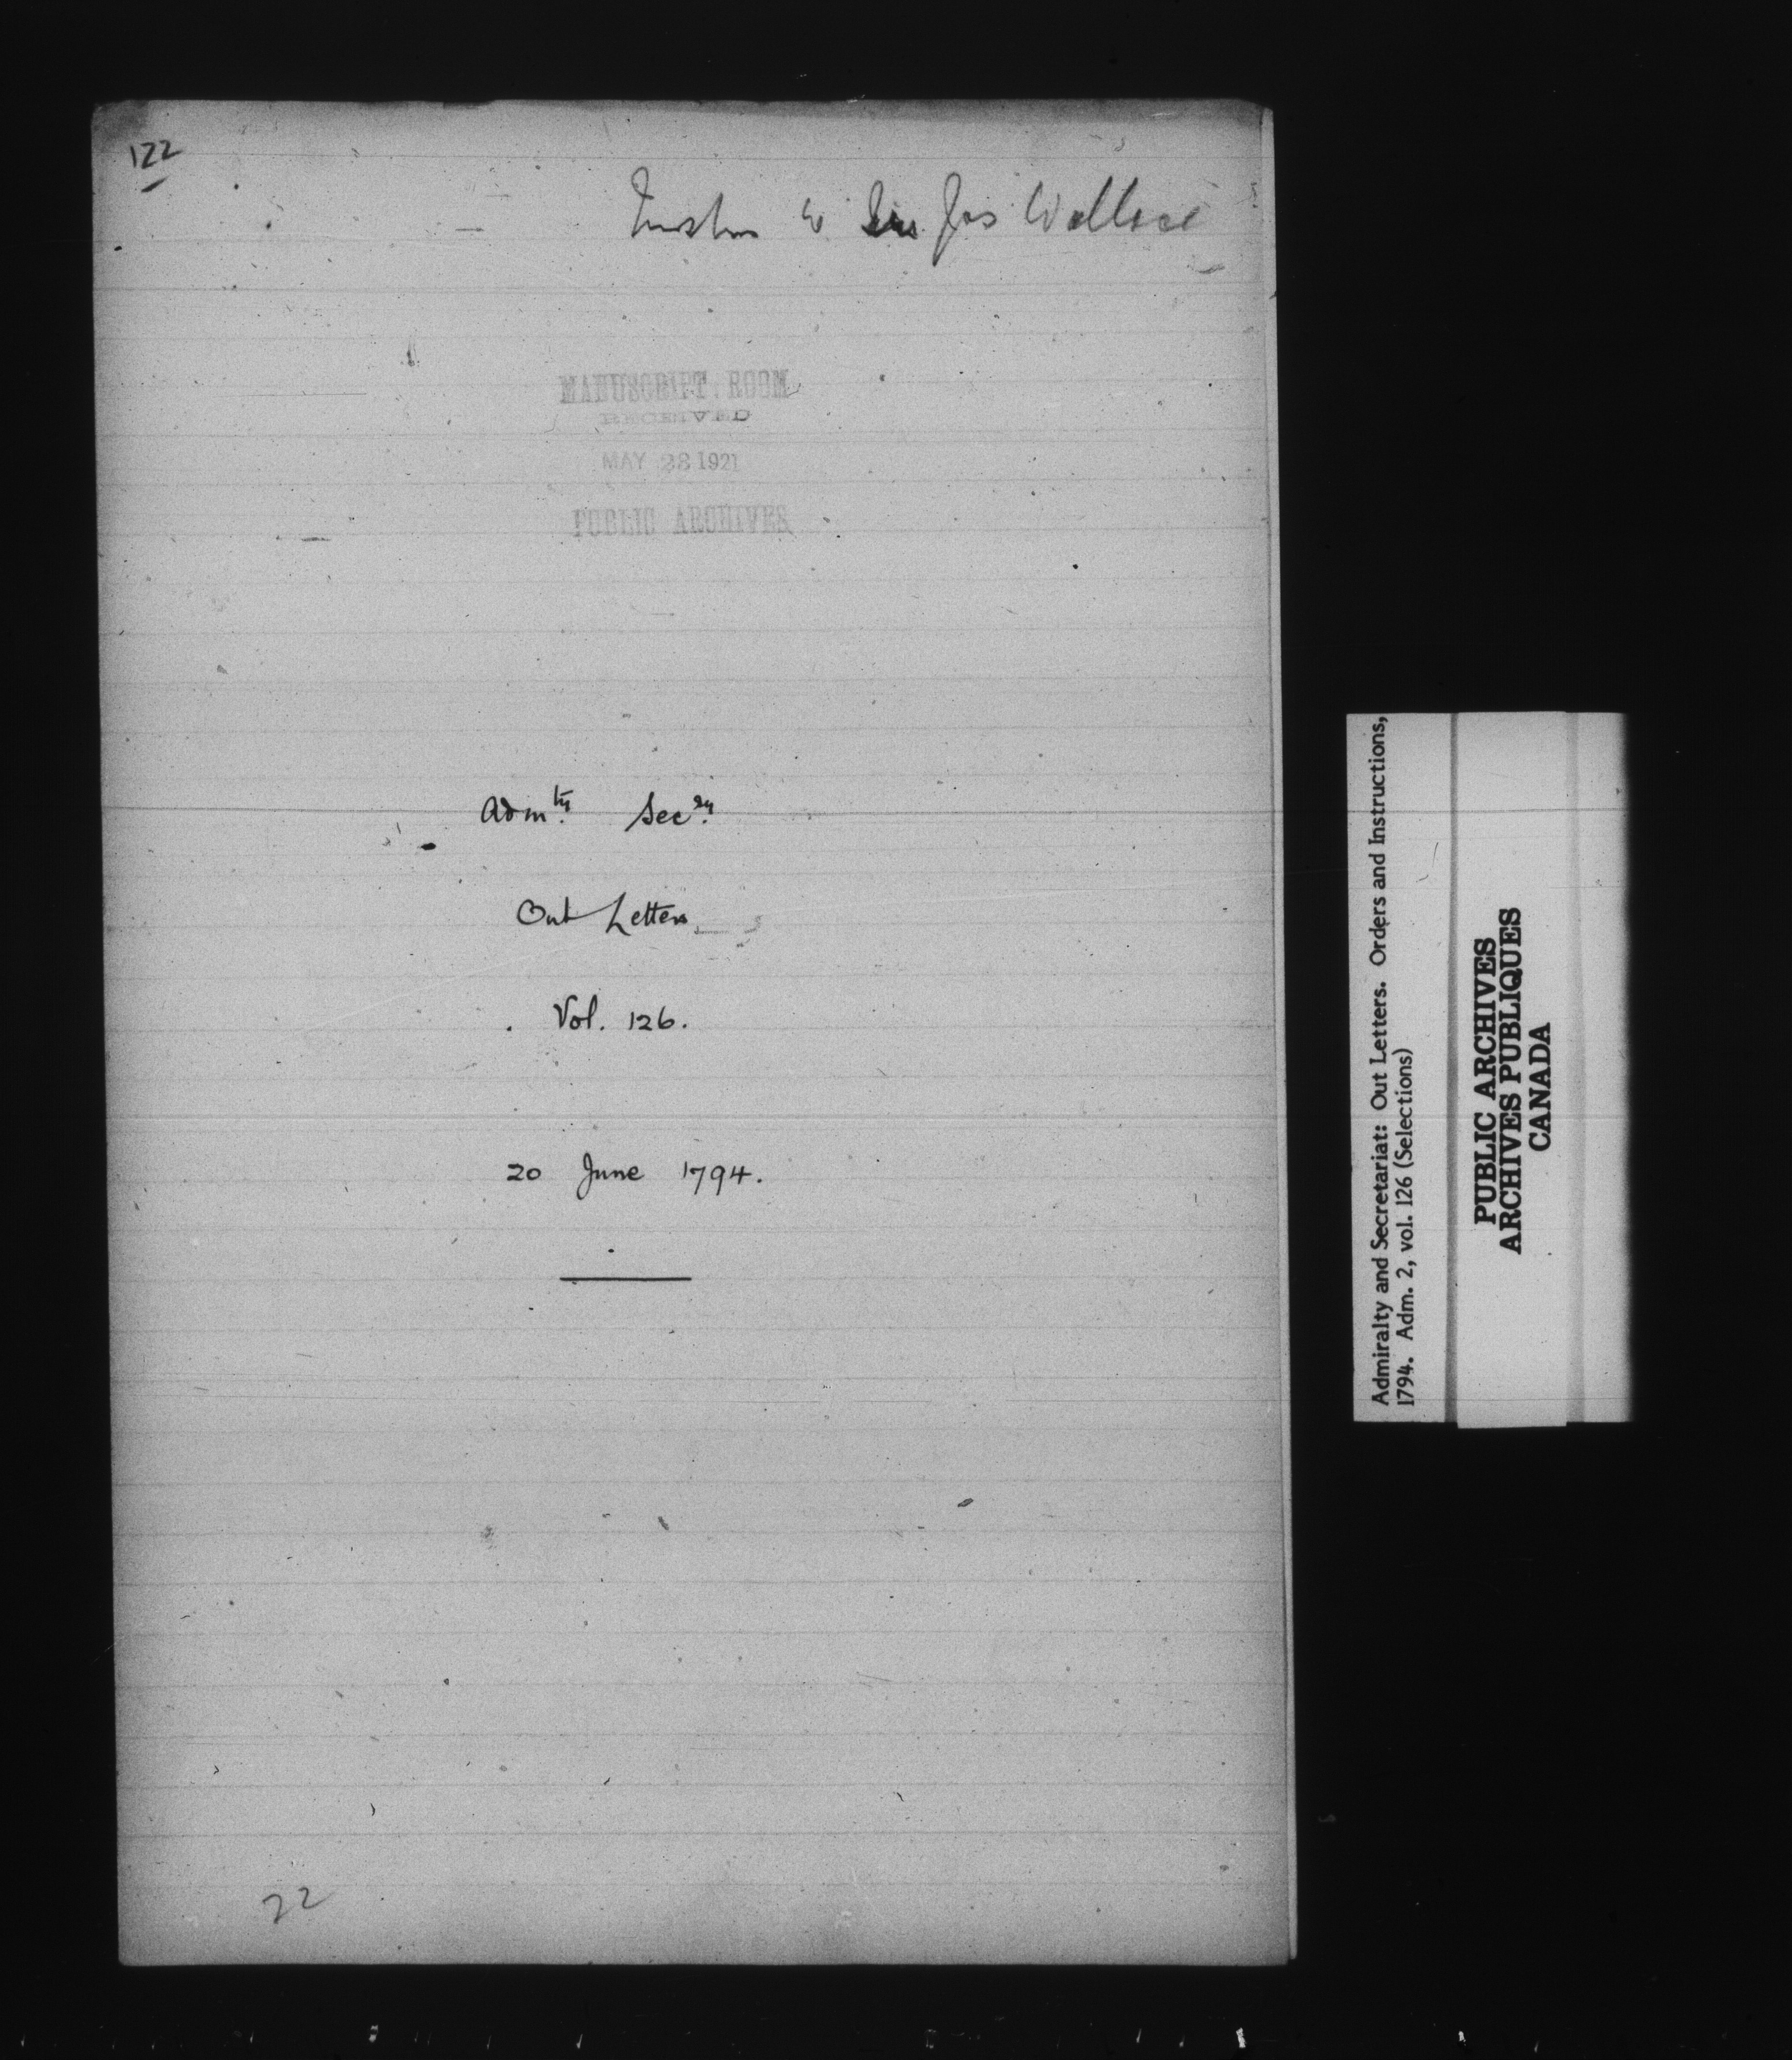 122
to Sir Jas Wallace
MANUSCRIPT ROOM
RECEIVED
MAY 28 1921
PUBLIC ARCHIVES
Admty. Secry.
Out Letters
Vol. 126.
20 June 1794.
22
Admiralty and Secretariat: Out Letters. Orders and Instructions,
1794. Adm. 2, vol. 126 (Selections)
PUBLIC ARCHIVES
ARCHIVES PUBLIQUES
CANADA